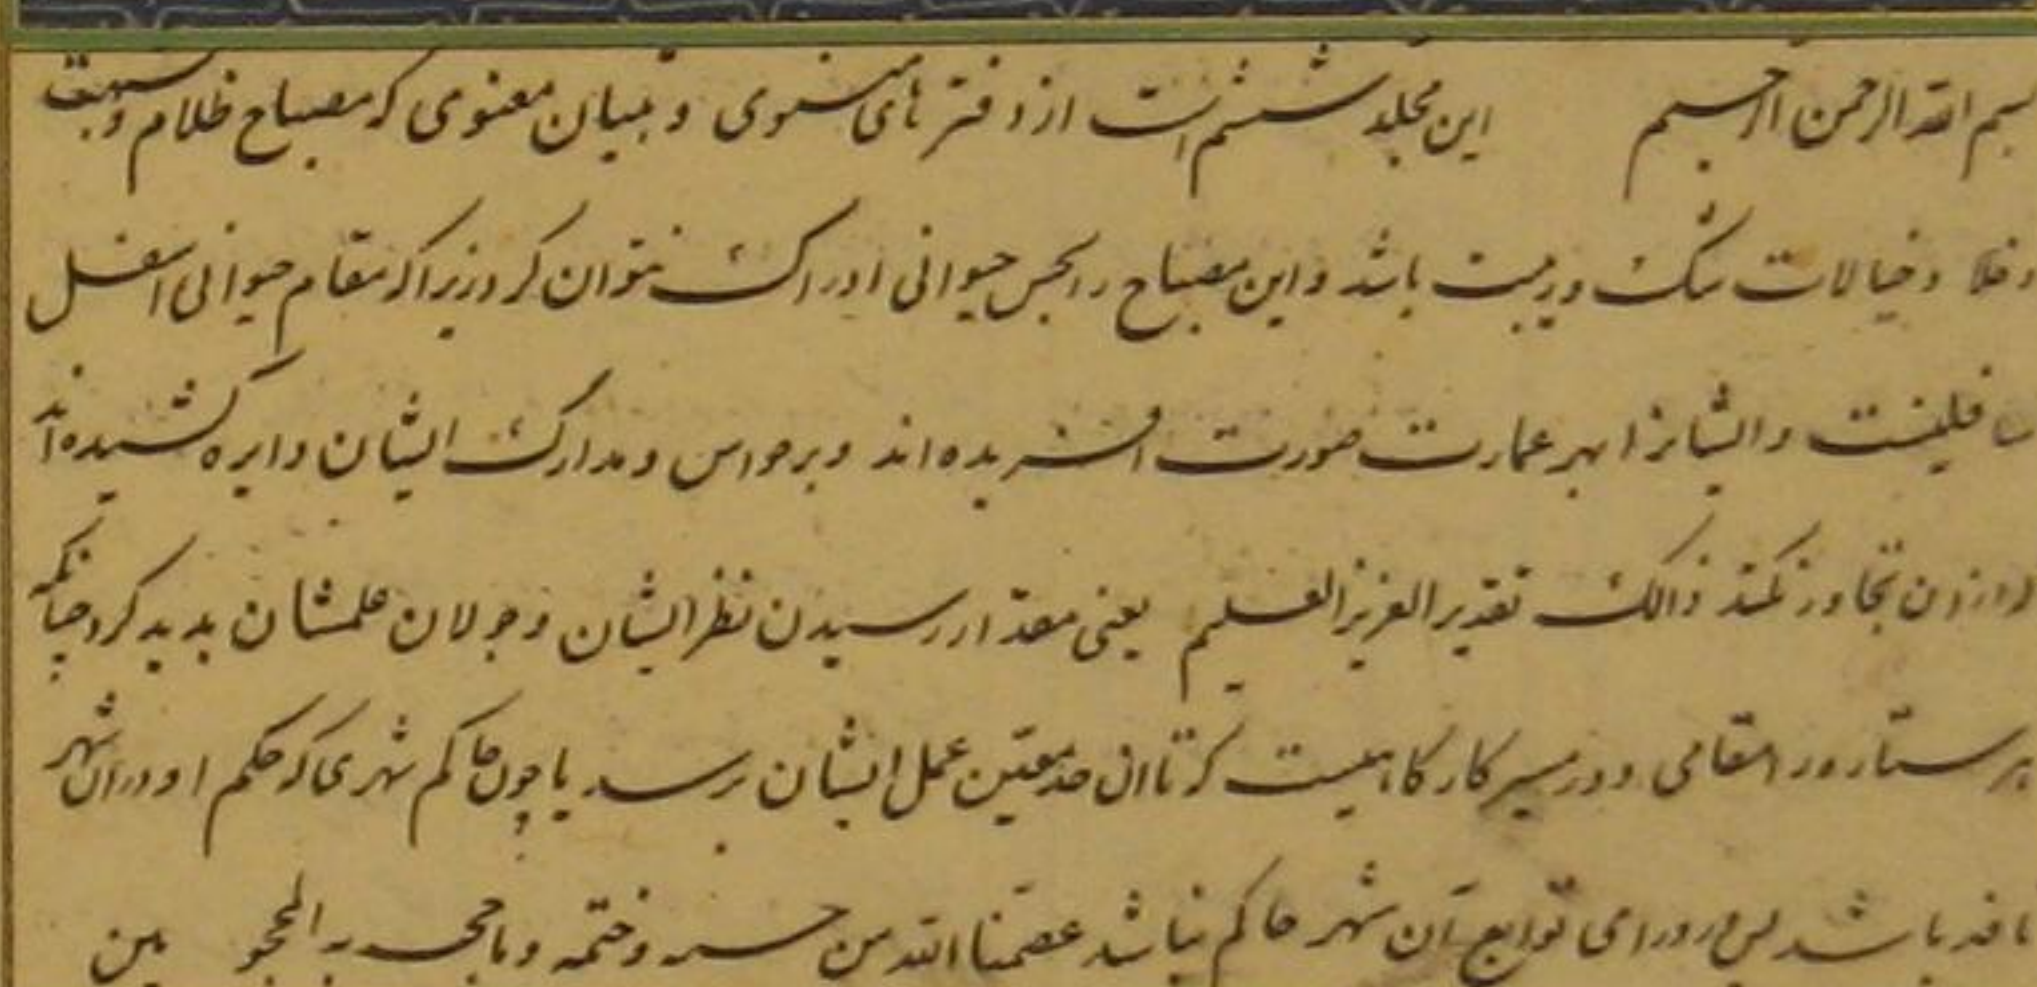 بسم الله الرحمن الرحیم این مجلد ششم است از دفترهای مثنوی و تبیان معنوی که مصباح ظلام و شبهت
و خیالات شک و ریبت باشد و این مصباح را بحس حیوانی ادراک نتوان کرد زیرا که مقام حیوانی اسفل
سافلینست و ایشانرا بهر عمارت صورت افریده اند و بر حواس و مدارک ایشان دایره کشیده اند
که از آن تجاوز نکنند ذالک تقدیر العزیز العلیم یعنی مقدار رسیدن نظر ایشان و جولان علمشان پدید کرد چنانکه
هر ستاره را مقامی و در مسیر کار کاهیست که تا ان حد معین عمل ایشان برسد یا چون حاکم شهری که حکم او در ان شهر
نافذ باشد ورای توابع آن شهر حاکم نباشد عصمنا الله من حبسه و ختمه و ما حجب به المحجوبین